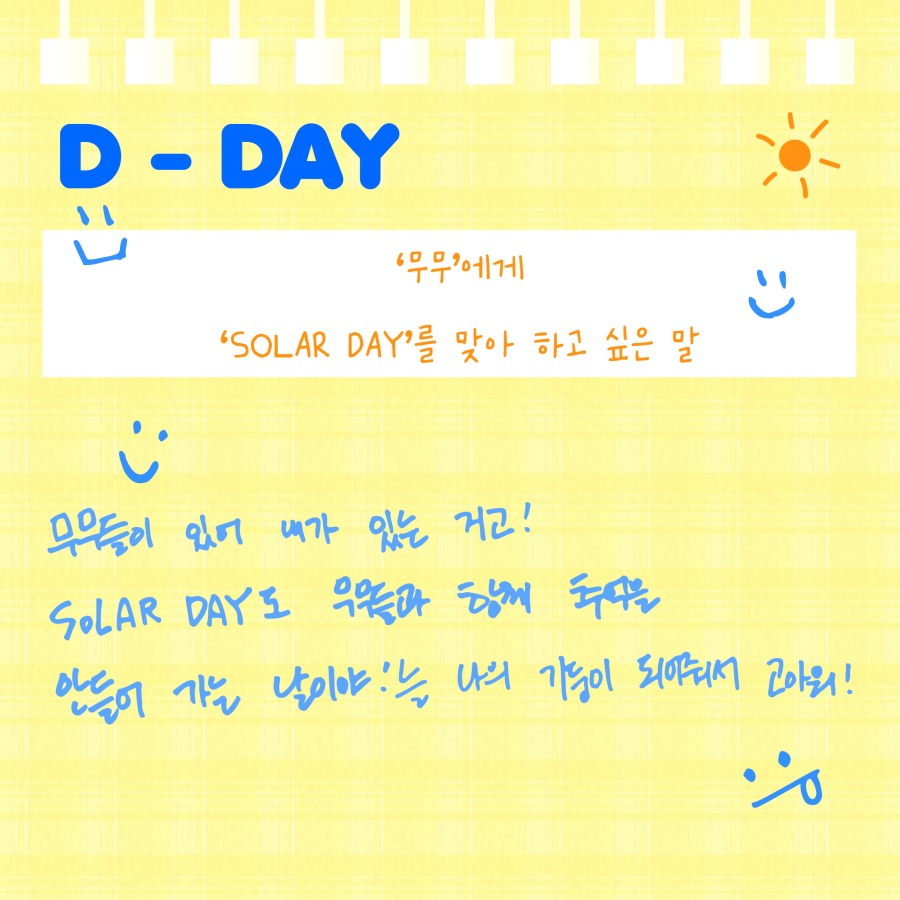 D - DAY
‘무무’에게
‘SOLAR DAY’를 맞아 하고 싶은 말
무무들이 있어 내가 있는 거고!
SOLAR DAY도 무무들과 함께 추억을
만들어 가는 날이야! 늘 나의 기둥이 되어줘서 고마워!